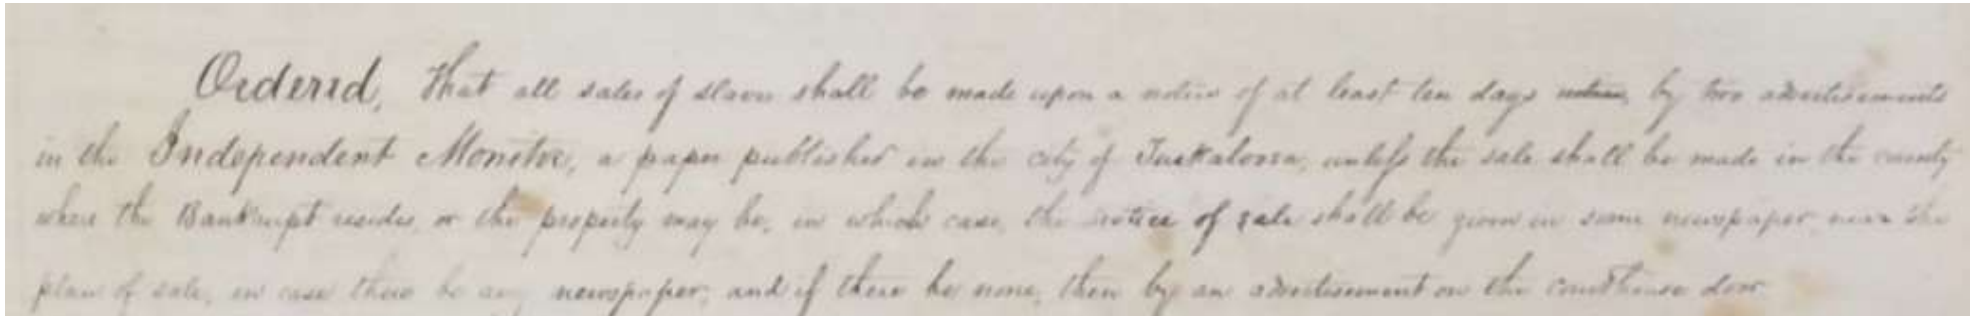 Ordered, That all sales of slaves shall be made upon a notice of at least ten days notice, by two advertisements
in the Independent Monitor, a paper published in the city of Tuskaloosa, unless the sale shall be made in the county
where the Bankrupt resides, or the property may be, in which case, the notice of sale shall be given in some newspaper near the
place of sale, in case there be any newspaper; and if there be none, then by an advertisement on the courthouse door.